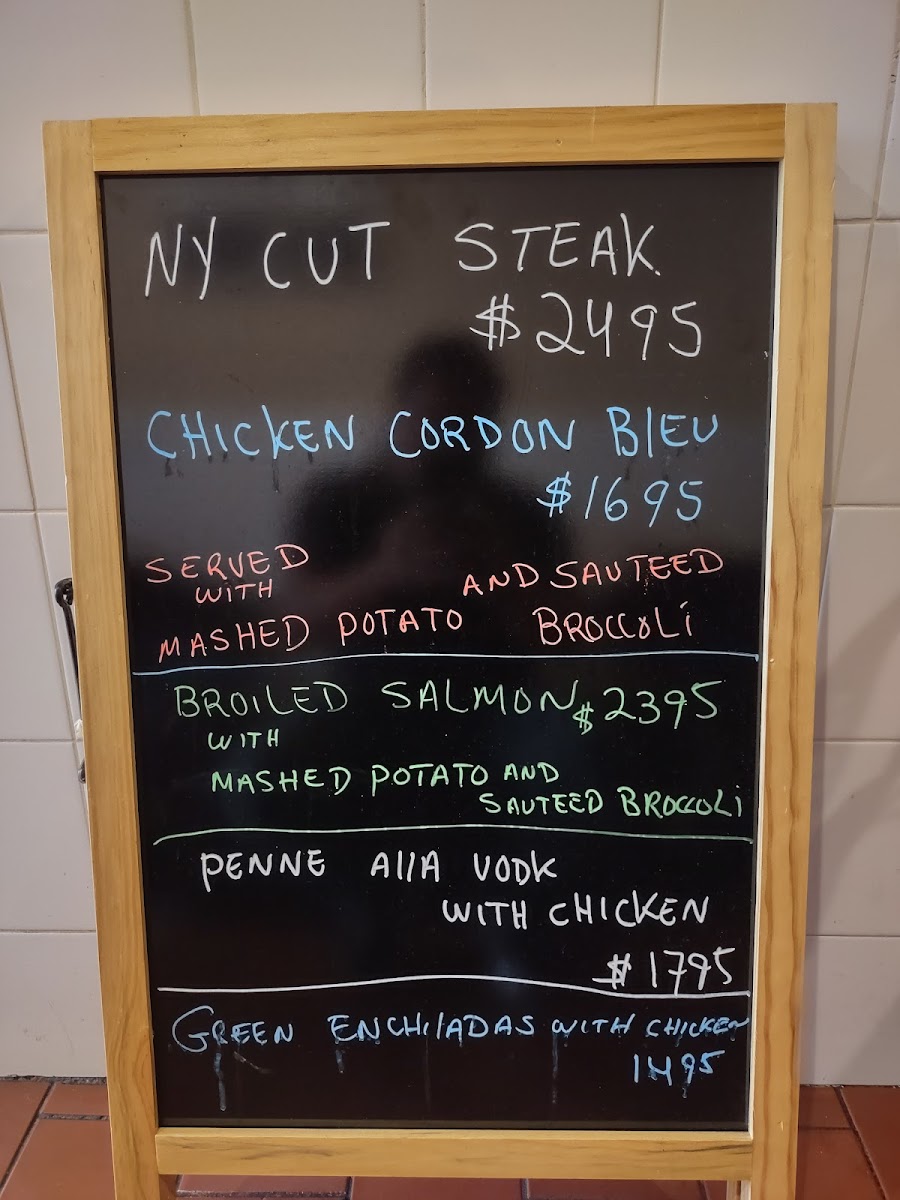 NY CUT STEAK
$2495
CHICKEN CORDON BlEU
$1695
SERVED
WITH
AND SAUTEED
MASHED POTATO BROCCOLi
BROILED SALMON $2395
WITH
MASHED POTATO AND
SAUTEED BROCCOLi
PENNE AllA VODK
WITH CHICKEN
$1795
GREEN ENCHilADAS WITH CHICKEN
1495